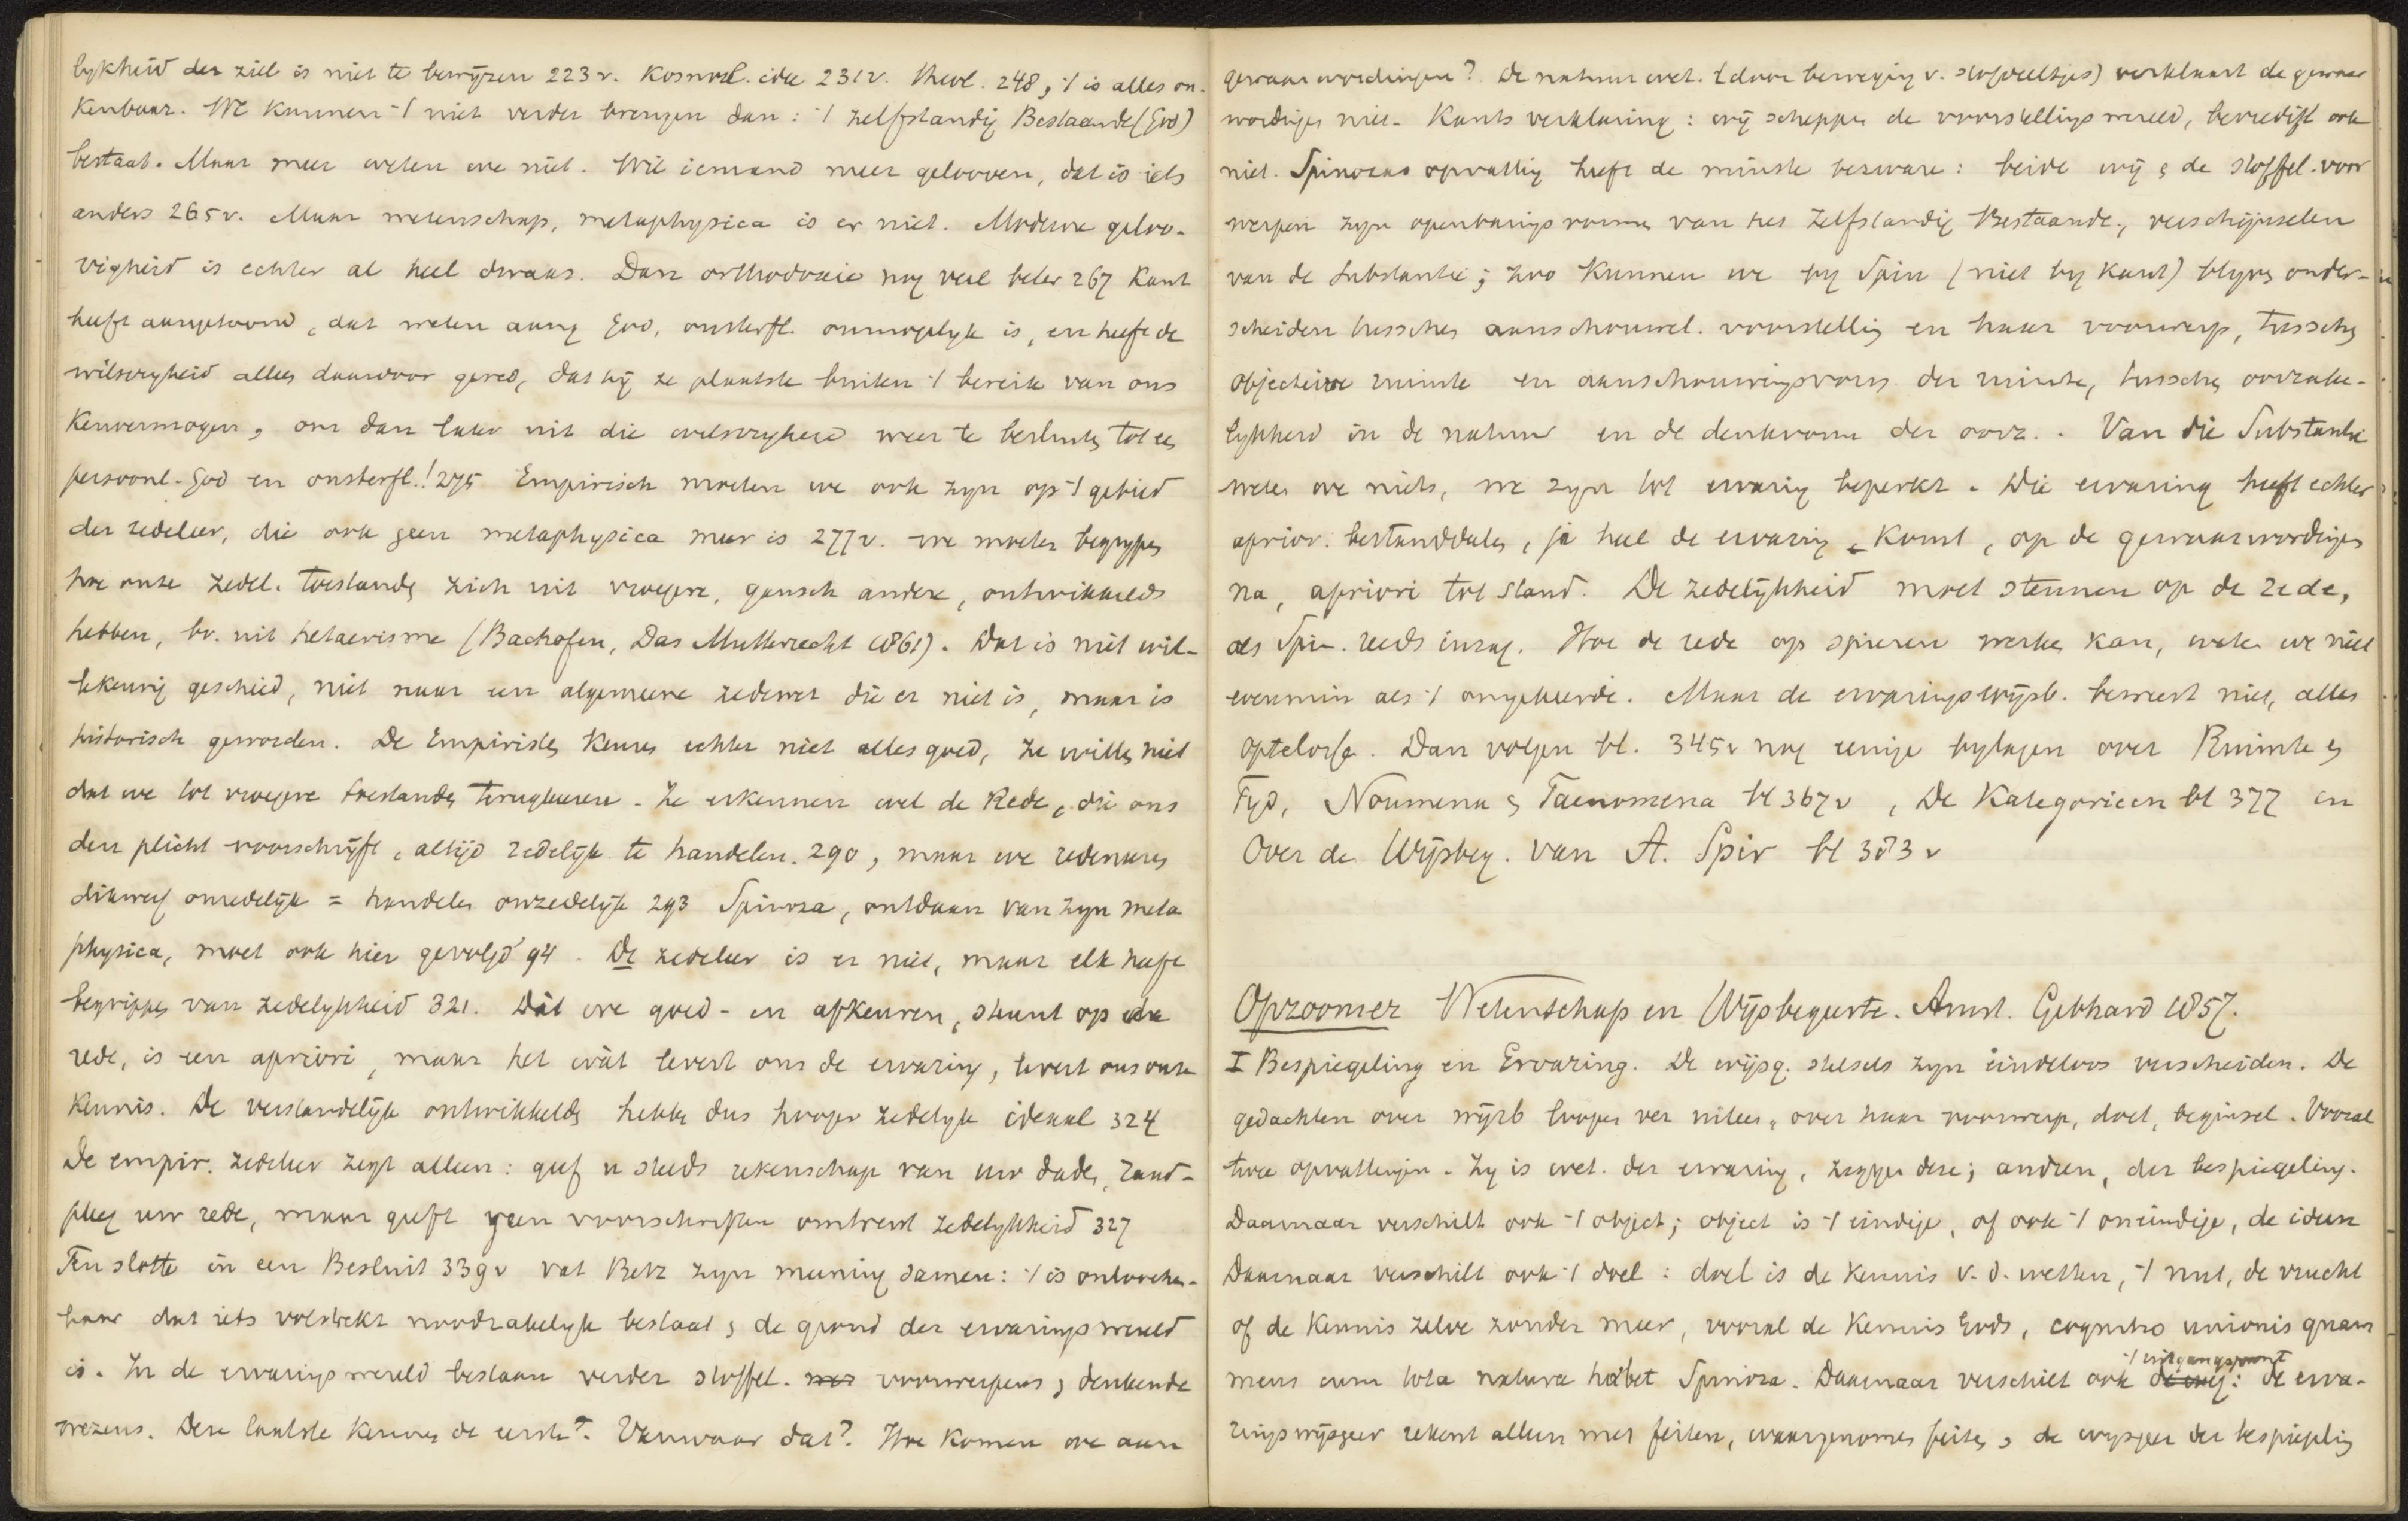 lykheid der ziel is niet te bewyzen 223 v. Kosmol. idee 231 v. theol. 248, 't is alles on-
kenbaar. We kunnen 't niet verder brengen dan: 't zelfstandig Bestaande (God)
bestaat. Maar meer weten we niet. Wil iemand meer gelooven, dat is iets
anders 265 v. Maar wetenschap, metaphysica is er niet. Moderne geloo-
vigheid is echter al heel dwaas. Dan orthodoxie nog veel beter 267 Kant
heeft aangetoond, dat weten aang God, onsterfl. onmogelyk is, en heeft de
wilsvryheid alleen daardoor gered, dat hy ze plaatste buiten 't bereik van ons
Kenvermogen, om dan later uit die wilsvryheid weer te besluiten tot een
persoonl. God en onsterfl.! 275 Empirisch moeten we ook zyn op 't gebied
der zedeleer, die ook geen metaphysica meer is 277 v. we moeten begrypen
hoe onze zedel. toestanden zich uit vroegere, gansch andere, ontwikkeld
hebben, bv. uit hetaerisme (Bachofen, Das Mutterrecht 1861). Dat is niet wil-
lekeurig geschied, niet naar een algemeene zedewet die er niet is, maar is
historisch geworden. De Empiristen keuren echter niet alles goed, ze willen niet
dat we tot vroegere toestanden terugkeeren. Ze erkennen wel de Rede, die ons
den plicht voorschryft, altijd redelijk te handelen. 290, maar we redeneeren
dikwerf onredelijk = handelen onzedelijk 293 Spinoza, ontdaan van zyn meta
physica, moet ook hier gevolgd 94. De zedeleer is er niet, maar elk heeft
begrippen van zedelykheid 321. Dát we goed- en afkeuren, steunt op de
rede, is een apriori, maar het wát levert ons de ervaring, levert ons onze
Kennis. De verstandelijk ontwikkelden hebben dus hooger zedelyk ideaal 324
De empir. zedeleer zegt alleen: geef u steeds rekenschap van uw daden, raad-
pleeg uw rede, maar geeft geen voorschriften omtrent zedelykheid 327
Ten slotte in een Besluit 339 v vat Betz zyn meening samen: 't is ontwyfel-
baar dat iets volstrekt noodzakelyk bestaat, de grond der ervaringswereld
is. In de ervaringswereld bestaan verder stoffel. voorwerpen, denkende
wezens. Deze laatste kennen de eerste. Vanwaar dat? Hoe komen we aan
gewaarwordingen? De natuurwet. (door beweging v. stofdeeltjes) verklaart de gewaar
wordingen niet. Kants verklaring: wij scheppen de voorstellingswereld, bevredigt ook
niet. Spinozas opvatting heeft de minste bezwaren: beide wij & de stoffel. voor
werpen zyn openbaringsvormen van het Zelfstandig Bestaande, verschijnselen
van de Substantie; zoo kunnen we by Spin (niet by Kant) blyven onder-
scheiden tusschen aanschouwel. voorstelling en haar voorwerp, tusschen
objectieve ruimte en aanschouwingsvorm der ruimte, tusschen oorzake-
lykheid in de natuur en de denkvorm der oorz. . Van die Substantie
weten we niets, we zyn tot ervaring beperkt. Die ervaring heeft echter
aprior. bestanddeelen, ja heel de ervaring komt, op de gewaarwordingen
na, apriori tot stand. De zedelijkheid moet steunen op de rede,
als Spin. reeds inzag. Hoe de rede op spieren werken kan, weten we niet
evenmin als 't omgekeerde. Maar de ervaringswijsb. beweert niet, alles
optelossen. Dan volgen bl. 345 v nog eenige bylagen over Ruimte &
Tyd, Noumena & Faenomena bl 367 v, De Kategorieën bl 377 en
Over de Wijsbeg. van A. Spir bl 383 v
Opzoomer Wetenschap en Wijsbegeerte. Amst. Gebhard 1857.
I Bespiegeling en Ervaring. De wijsg. stelsels zyn eindeloos verscheiden. De
gedachten over wijsb loopen ver uiteen, over haar voorwerp, doel, beginsel. Vooral
twee opvattingen. Zy is wet. der ervaring, zeggen deze; andren, der bespiegeling.
Daarnaar verschilt ook 't object; object is 't eindige, of ook 't oneindige, de ideeen
Daarnaar verschilt ook 't doel: doel is de kennis v. d. wetten, 't nut, de vrucht
of de Kennis zelve zonder meer, vooral de Kennis Gods, cognitio unionis quam
mens cum tota natura habet Spinoza. Daarnaar verschilt ook 't uitgangspunt: de erva-
ringswijsgeer rekent alleen met feiten, waargenomen feiten, de wysgeer der bespiegeling